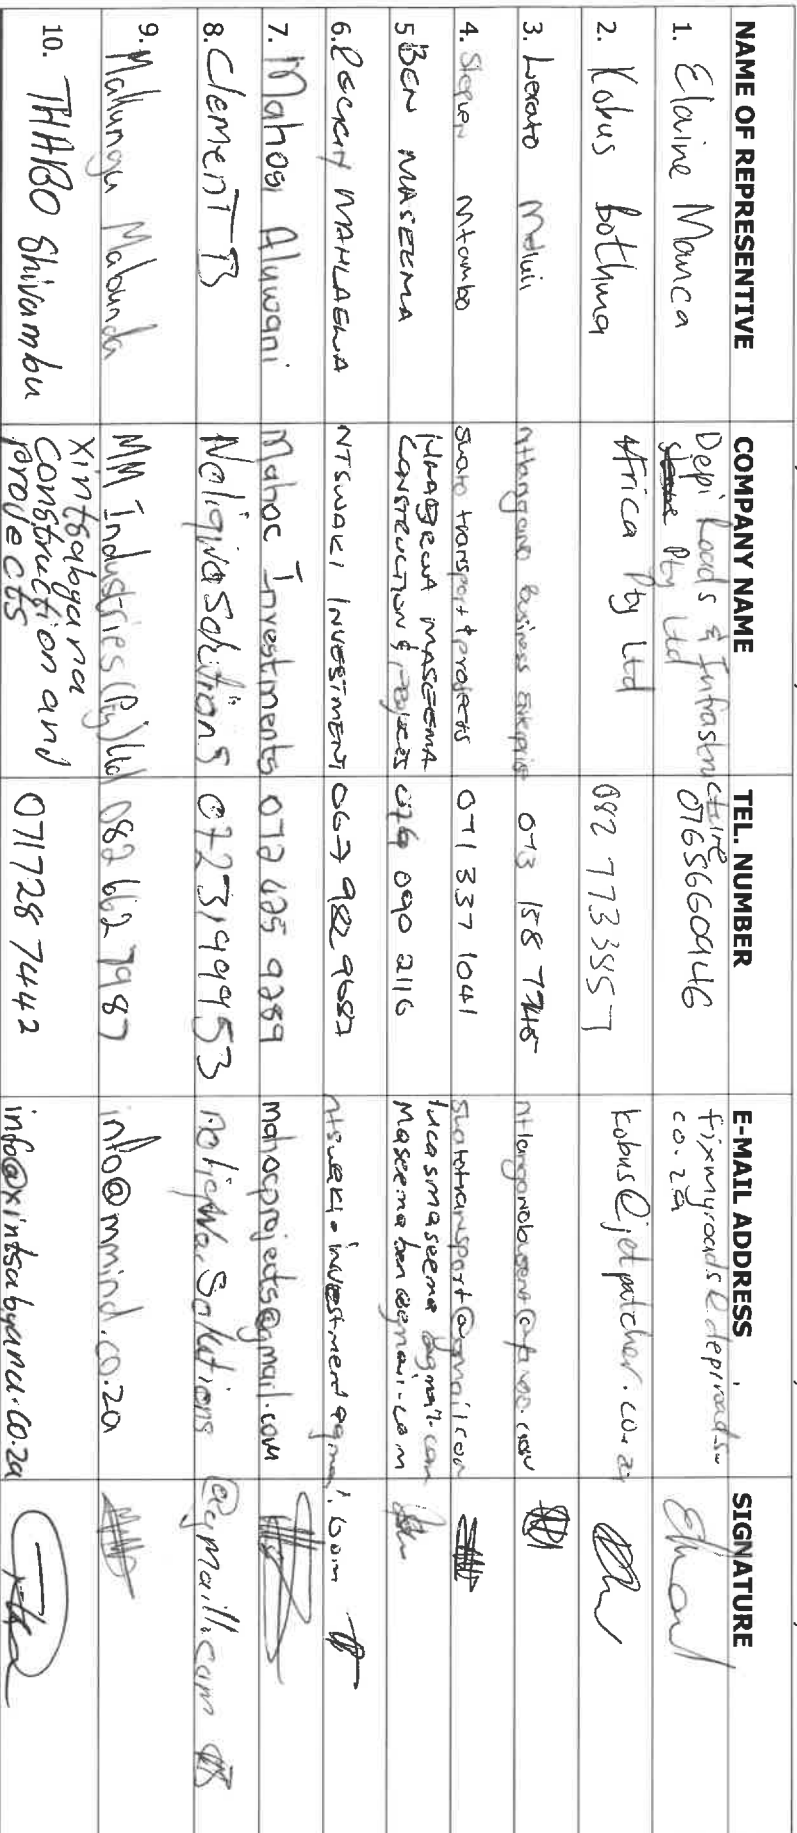 NAME OF REPRESENTIVE COMPANY NAME TEL. NUMBER E-MAIL ADDRESS SIGNATURE
1. Elaine Manca Depi Roads & Infrastructure Pty Ltd 0765660946 fixmyroads@depiroads.co.za
2. Kobus Bothma Africa Pty Ltd 082 773 3457 kobus@jetpatcher.co.za
3. Lerato business 073 158
4. Stephen Mtambo transport & projects 071 337 1041
5 BEN MASEEMA MASEEMA CONSTRUCTION & PROJECTS 076 090 2116 lucasmaseema@gmail.com maseemaben@gmail.com
6. MAHLAELA NTSWAKI INVESTMENT 067 982 9687 ntswaki.investment@gmail.com
7. Mahosi Aluwani Mahoc Investments 072 625 9289 mahocprojects@gmail.com
8. Clement TB Solutions 0723199953 Solutions @gmail.com
9. Mabunda MM Industries (Pty) Ltd 082 662 7987 info@mmind.co.za
10. THABO Shivambu Xintsabyana Construction and projects 071728 7442 info@xintsabyana.co.za